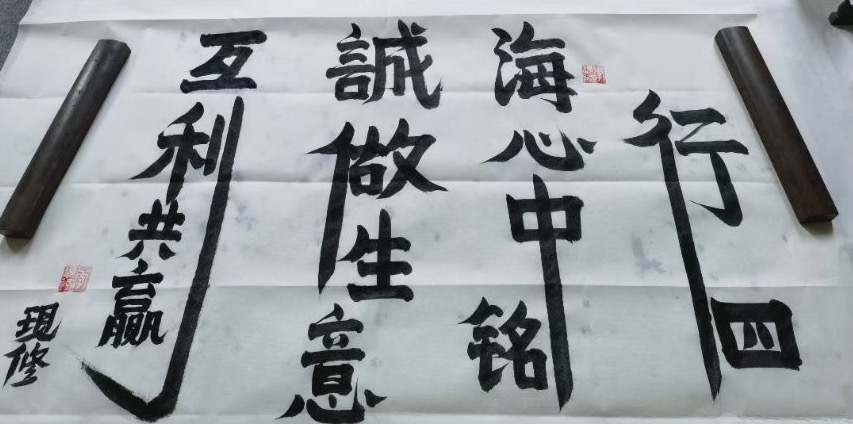 行四
海心中铭
誠做生意
互利共赢
現修